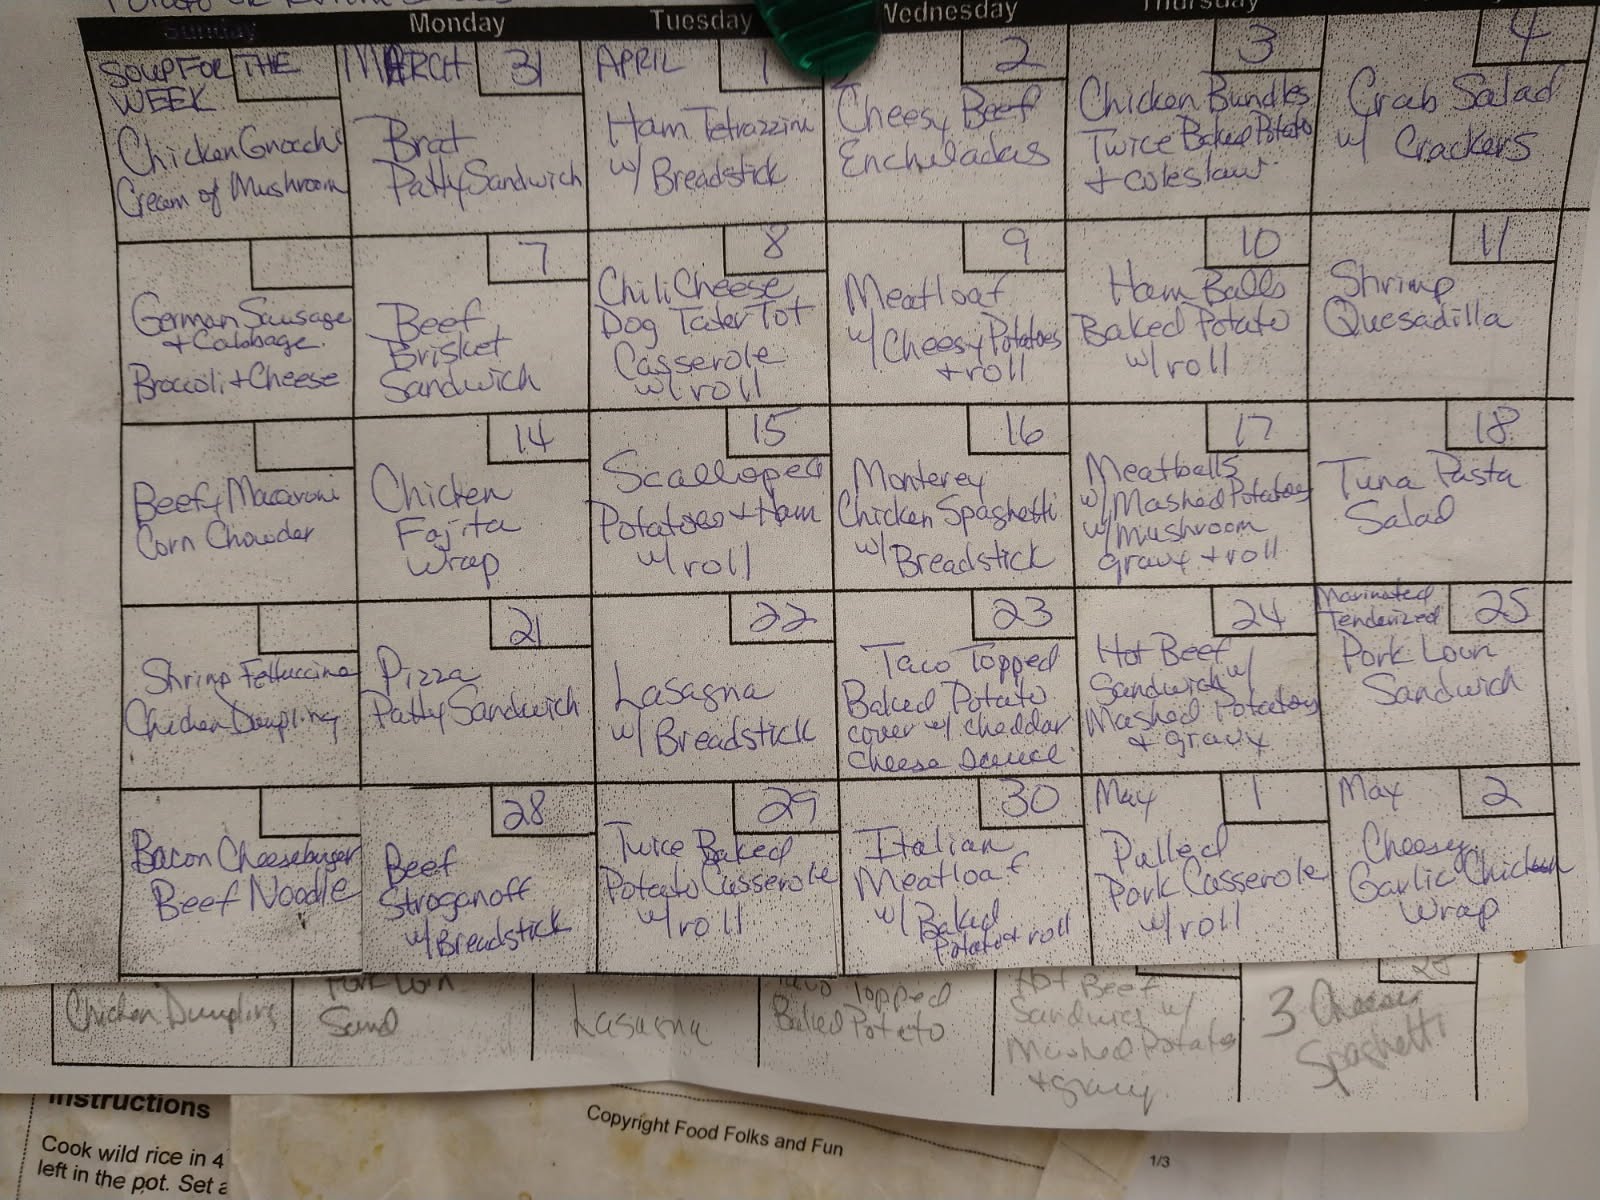 Sunday
Monday
Tuesday
Wednesday
Thursday
SOUP FOR THE
WEEK
Chicken Gnocchi
Cream of Mushroom
MARCH 31
Brat
Patty Sandwich
APRIL 1
Ham Tetrazzini
w/ Breadstick
2
Cheesy Beef
Encheladas
3
Chicken Bundles
Twice Baked Potato
+ coleslaw
4
Crab Salad
w/ Crackers
German Sausage
+ Cabbage
Broccoli + Cheese
7
Beef
Brisket
Sandwich
8
Chili Cheese
Dog Tater Tot
Casserole
w/ roll
9
Meatloaf
w/ Cheesy Potatoes
+ roll
10
Ham Balls
Baked Potato
w/ roll
11
Shrimp
Quesadilla
Beefy Macaroni
Corn Chowder
14
Chicken
Fajita
Wrap
15
Scalloped
Potatoes + Ham
w/ roll
16
Monterey
Chicken Spaghetti
w/ Breadstick
17
Meatballs
w/ Mashed Potatoes
w/ mushroom
gravy + roll
18
Tuna Pasta
Salad
Shrimp Fettuccine
Chicken Dumpling
21
Pizza
Patty Sandwich
22
Lasagna
w/ Breadstick
23
Taco Topped
Baked Potato
cover w/ cheddar
cheese sauce
24
Hot Beef
Sandwich w/
Mashed Potatoes
+ gravy
25
Marinated
Tenderized
Pork Loin
Sandwich
Bacon Cheeseburger
Beef Noodle
28
Beef
Stroganoff
w/ Breadstick
29
Twice Baked
Potato Casserole
w/ roll
30
Italian
Meatloaf
w/ Baked
Potato + roll
May 1
Pulled
Pork Casserole
w/ roll
May 2
Cheesy
Garlic Chicken
Wrap
Chicken Dumpling
Pork Loin
Sand
Lasagna
Taco Topped
Baked Potato
Hot Beef
Sandwich w/
Mashed Potato
+ gravy
3 Cheese
Spaghetti
Instructions
Cook wild rice in 4
left in the pot. Set a
Copyright Food Folks and Fun
1/3